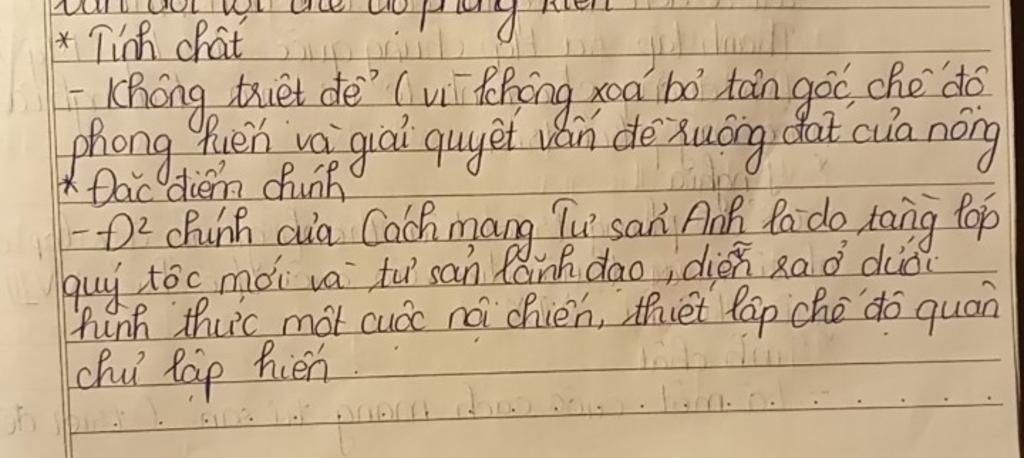 vấn đối với chế độ phong kiến
* Tính chất
- Không triệt để (vì không xoá bỏ tận gốc chế độ
phong kiến và giải quyết vấn đề ruộng đất của nông
* Đặc điểm chính
- Đ² chính của Cách mạng Tư sản Anh là do tầng lớp
quý tộc mới và tư sản lãnh đạo, diễn ra ở dưới
hình thức một cuộc nội chiến, thiết lập chế độ quân
chủ lập hiến.